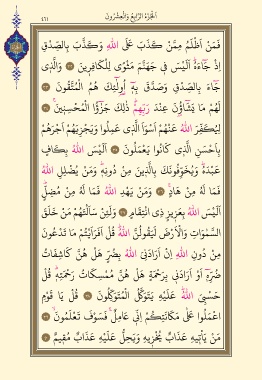 اَلْجُزْءُ الرَّابِعُ وَالْعِشْرُونَ
٤٦١
فَمَنْ اَظْلَمُ مِمَّنْ كَذَبَ عَلَى اللّٰهِ وَكَذَّبَ بِالصِّدْقِ
اِذْ جَٓاءَهُۜ اَلَيْسَ ف۪ي جَهَنَّمَ مَثْوًى لِلْكَافِر۪ينَ ﴿٣٢﴾ وَالَّذ۪ي
جَٓاءَ بِالصِّدْقِ وَصَدَّقَ بِه۪ٓ اُو۬لٰٓئِكَ هُمُ الْمُتَّقُونَ ﴿٣٣﴾
لَهُمْ مَا يَشَٓاؤُ۫نَ عِنْدَ رَبِّهِمْۜ ذٰلِكَ جَزٰٓؤُا الْمُحْسِن۪ينَۚ ﴿٣٤﴾
لِيُكَفِّرَ اللّٰهُ عَنْهُمْ اَسْوَاَ الَّذ۪ي عَمِلُوا وَيَجْزِيَهُمْ اَجْرَهُمْ
بِاَحْسَنِ الَّذ۪ي كَانُوا يَعْمَلُونَ ﴿٣٥﴾ اَلَيْسَ اللّٰهُ بِكَافٍ
عَبْدَهُۜ وَيُخَوِّفُونَكَ بِالَّذ۪ينَ مِنْ دُونِه۪ۜ وَمَنْ يُضْلِلِ اللّٰهُ
فَمَا لَهُ مِنْ هَادٍۚ ﴿٣٦﴾ وَمَنْ يَهْدِ اللّٰهُ فَمَا لَهُ مِنْ مُضِلٍّۜ
اَلَيْسَ اللّٰهُ بِعَز۪يزٍ ذِي انْتِقَامٍ ﴿٣٧﴾ وَلَئِنْ سَاَلْتَهُمْ مَنْ خَلَقَ
السَّمٰوَاتِ وَالْاَرْضَ لَيَقُولُنَّ اللّٰهُۜ قُلْ اَفَرَاَيْتُمْ مَا تَدْعُونَ
مِنْ دُونِ اللّٰهِ اِنْ اَرَادَنِيَ اللّٰهُ بِضُرٍّ هَلْ هُنَّ كَاشِفَاتُ
ضُرِّه۪ٓ اَوْ اَرَادَن۪ي بِرَحْمَةٍ هَلْ هُنَّ مُمْسِكَاتُ رَحْمَتِه۪ۜ قُلْ
حَسْبِيَ اللّٰهُۜ عَلَيْهِ يَتَوَكَّلُ الْمُتَوَكِّلُونَ ﴿٣٨﴾ قُلْ يَا قَوْمِ
اعْمَلُوا عَلٰى مَكَانَتِكُمْ اِنّ۪ي عَامِلٌۚ فَسَوْفَ تَعْلَمُونَۙ ﴿٣٩﴾
مَنْ يَأْت۪يهِ عَذَابٌ يُخْز۪يهِ وَيَحِلُّ عَلَيْهِ عَذَابٌ مُق۪يمٌ ﴿٤٠﴾